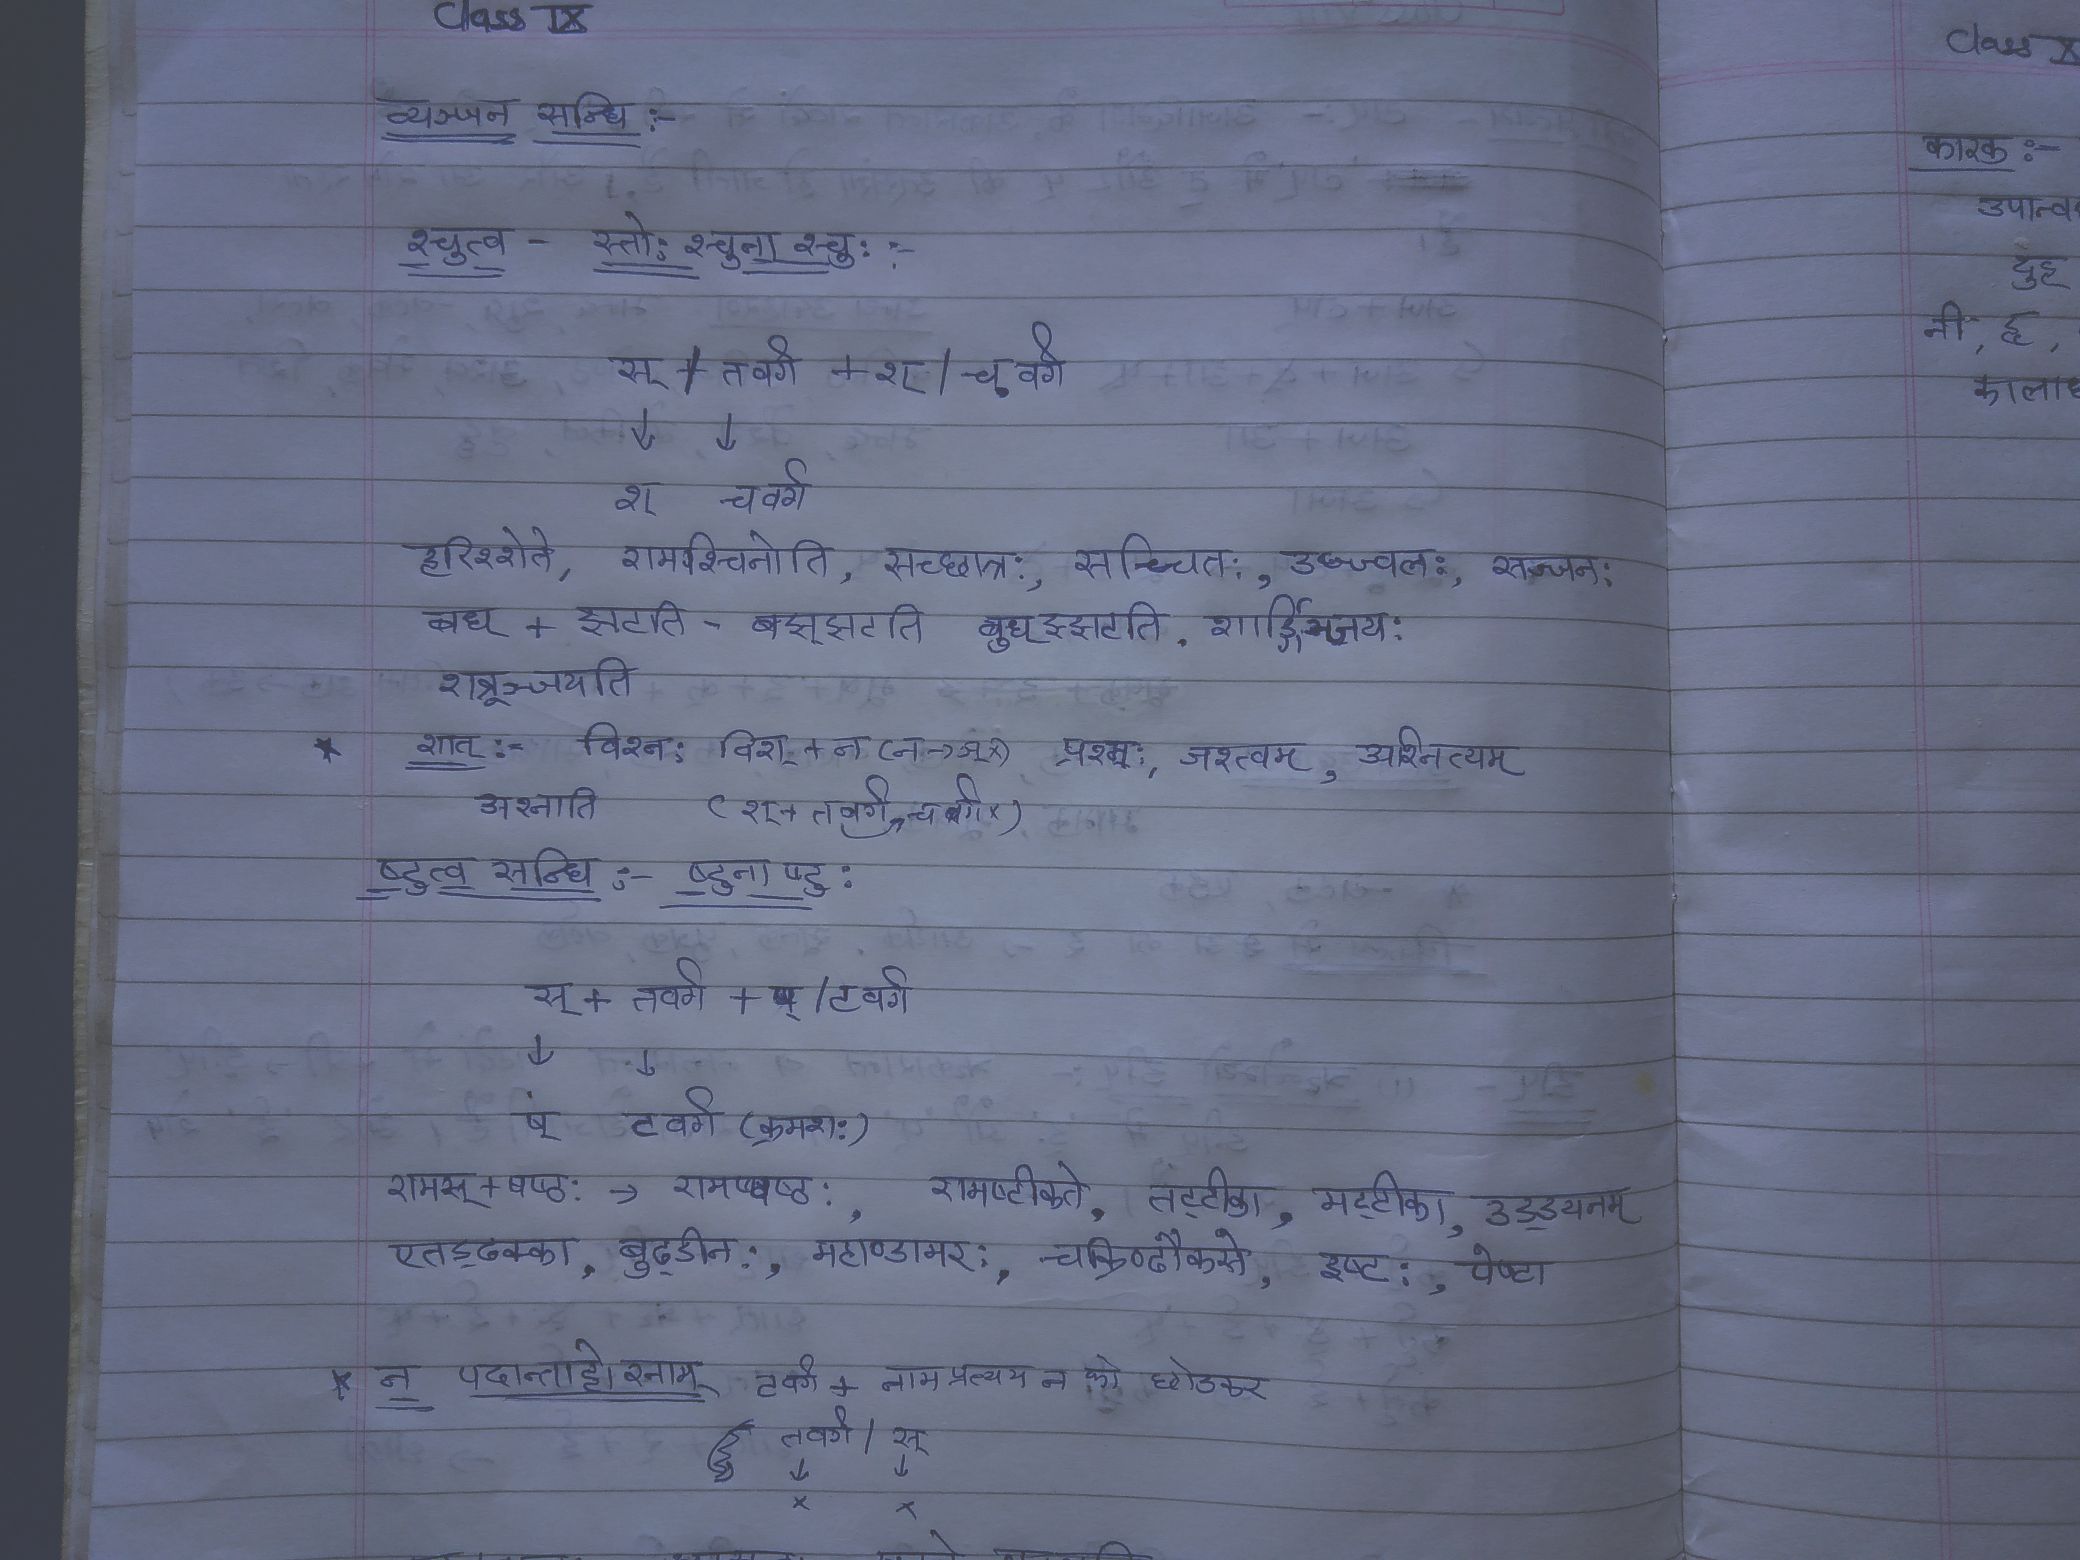 Class IX
व्यञ्जन सन्धि :-
श्चुत्व - स्तोः श्चुना श्चुः :-
स् / तवर्ग + श् / चवर्ग
↓ ↓
श् चवर्ग
हरिश्शेते, रामश्चिनोति, सच्छात्रः, सच्चितः, उज्ज्वलः, सज्जनः
बध् + झटति - बझ्झटति बुध्झ्झटति. शार्ङ्गिञ्जयः
शत्रूञ्जयति
* शात् :- विश्नः विश् + न (न→ञ् x) प्रश्नः, जश्त्वम्, अश्नित्यम्
अश्नाति (श् + तवर्ग, चवर्ग x)
ष्टुत्व सन्धि :- ष्टुना ष्टुः
स् + तवर्ग + ष् / टवर्ग
↓ ↓
ष् टवर्ग (क्रमशः)
रामस् + षष्ठः → रामष्षष्ठः, रामष्टीकते, तट्टीका, मट्टीका, उड्डयनम्
एतड्ढक्का, बुद्डीनः, महाण्डामरः, चक्रिण्ढौकसे, इष्टः, पेष्टा
* न पदान्ताट्टोरनाम् टवर्ग + नाम प्रत्यय न को छोडकर
तवर्ग / स्
↓ ↓
x x
Class X
कारक :-
दुह्
नी, हृ,